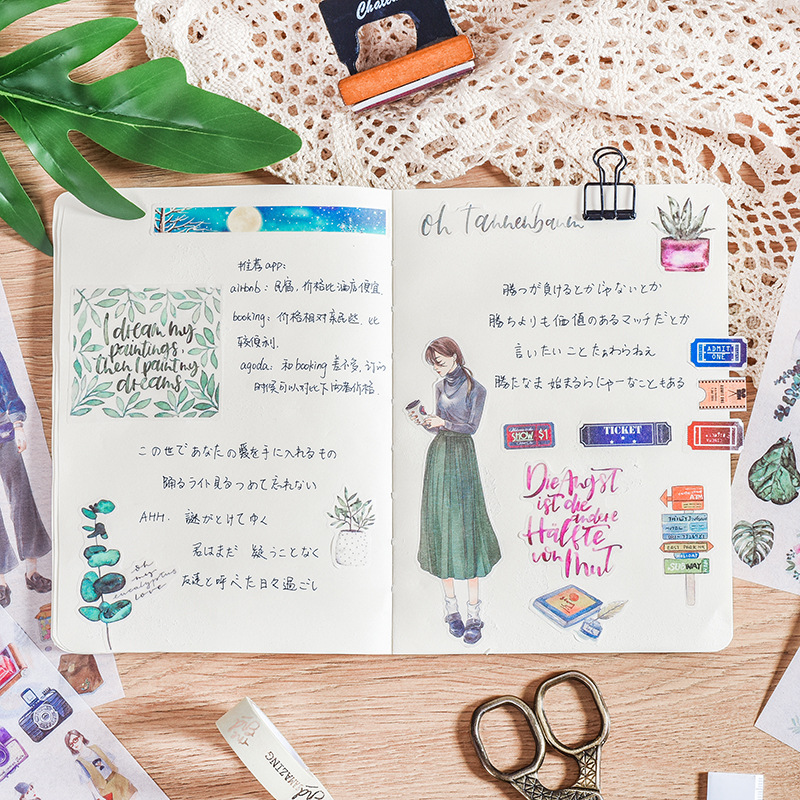 推荐app:
airbnb: 民宿,价格比酒店便宜
booking: 价格相对亲民些,比
较便利.
agoda: 和booking差不多,订的
时候可以对比下两者价格.
I dream my
paintings,
then I paint my
dreams
この世であなたの愛を手に入れるもの
踊るライト見るつめて忘れない
AHH. 謎がとけてゆく
君はまだ 疑うことなく
友達と呼べた日々過ごし
oh
my
eucalyptus
love
oh Tannenbaum
勝つが負けるとかじゃないとか
勝ちよりも価値のあるマッチだとか
言いたいことたぁわらねぇ
勝たなま始まるらにゃーなこともある
ADMIT
ONE
SHOW $1
TICKET
Die Angst
ist die
andere
Hälfte
von Mut
SUBWAY
AMAZING